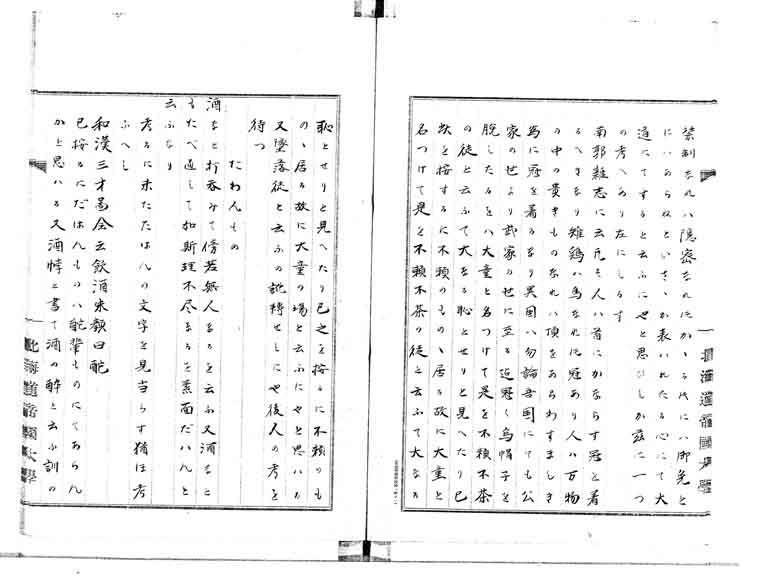 禁制なれハ隠密なれにかゝる代にハ御免と
にハあらねといさゝか表ハれたる心にて大
道にてすると云ふにやと思ひしか茲に一つ
の考へあり左にしるす
南郭雑志に云凡そ人ハ首にかならす冠を着
るへきなり雉鶏ハ鳥なれに冠あり人ハ万物
の中の貴きものなれハ頂をあらわすましき
為に冠を着るなり異国ハ勿論吾国にても公
家の世より武家の世に至る迄冠し烏帽子を
脱したるをハ大童と名つけて是を不頼不茶
の徒と云ふて大なる恥とせりと見へたり已
故を按するに不頼のものゝ居る故に大童と
名つけて是を不頼不茶の徒と云ふて大なる
恥とせりと見へたり已之を按るに不頼のも
のゝ居る故に大童の場と云ふにやと思ハる
又墜落徒と云ふの訛轉せしにや後人の考を
待つ
たわんもの
酒なと打呑みて傍若無人なるを云ふ又酒なと
もたべ過して如斯理不尽なるを蕉面だハんと
云ふなり
考るに未たたはハの文字を見当らす猶ほ考
ふへし
和漢三才圖会云飲酒朱顔曰酡
已按るにだはんものハ酡輩ものにてあらん
かと思ハる又酒悖と書て酒の酔と云ふ訓の
北海道帝國大學
北海道帝國大學